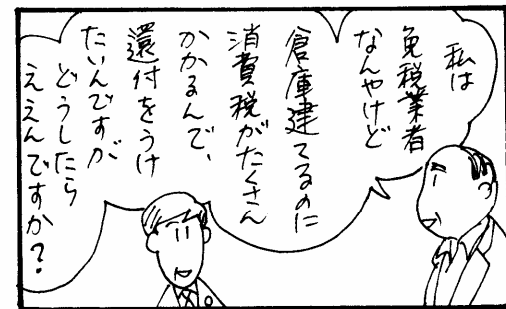 私は
免税業者
なんやけど
倉庫建てるのに
消費税がたくさん
かかるんで、
還付をうけ
たいんですが
どうしたら
ええんですか？